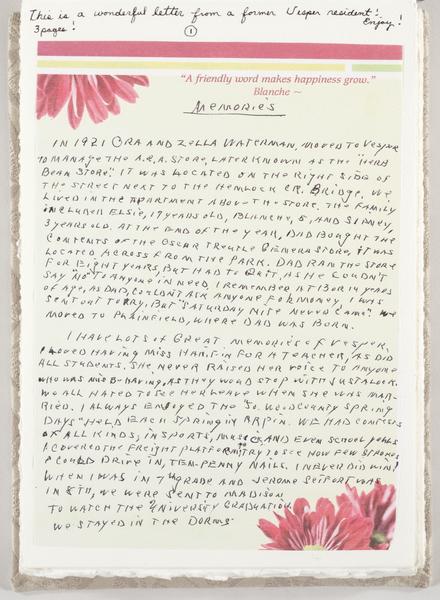 This is a wonderful letter from a former Vesper resident!
3 pages! ① Enjoy!
"A friendly word makes happiness grow."
Blanche ~
MEMORIES
IN 1921 ORA AND ZELLA WATERMAN, MOVED TO VESPER
TO MANAGE THE A.R.A. STORE, LATER KNOWN AS THE "HERB
BEAN STORE." IT WAS LOCATED ON THE RIGHT SIDE OF
THE STREET NEXT TO THE HEMLOCK CR. BRIDGE. WE
LIVED IN THE APARTMENT ABOVE THE STORE. THE FAMILY
INCLUDED ELSIE, 17 YEARS OLD, BLANCHE, 5, AND SIDNEY,
3 YEARS OLD. AT THE END OF THE YEAR, DAD BOUGHT THE
CONTENTS OF THE OSCAR TREUTLE GENERA STORE, IT WAS
LOCATED ACROSS FROM THE PARK. DAD RAN THE STORE
FOR EIGHT YEARS, BUT HAD TO QUIT, AS HE COULDN'T
SAY "NO" TO ANYONE IN NEED. I REMEMBER AT 13 OR 14 YEARS
OF AGE, AS DAD, COULDN'T ASK ANYONE FOR MONEY, I WAS
SENT OUT TO TRY. BUT "SATURDAY NITE NEVER CAME". WE
MOVED TO PLAINFIELD, WHERE DAD WAS BORN.
I HAVE LOTS OF GREAT MEMORIES OF VESPER,
I LOVED HAVING MISS HANIFIN FOR A TEACHER, AS DID
ALL STUDENTS. SHE NEVER RAISED HER VOICE TO ANYONE
WHO WAS MISBEHAVING, AS THEY WOUD STOP WITH JUST A LOOK.
WE ALL HATED TO SEE HER LEAVE WHEN SHE WAS MAR-
RIED. I ALWAYS ENJOYED THE "SO. WOOD COUNTY SPRING
DAYS" HELD EACH SPRING IN ARPIN. WE HAD CONTESTS
OF ALL KINDS; IN SPORTS, MUSIC, AND EVEN SCHOOL YELLS
I COVERED THE FREIGHT PLATFORM TO TRY TO SEE HOW FEW STROKES
I COULD DRIVE IN, TEN-PENNY NAILS. I NEVER DID WIN!
WHEN I WAS IN 7TH GRADE AND JEROME WAS
IN 8TH, WE WERE SENT TO MADISON
TO WATCH THE UNIVERSITY GRADUATION.
WE STAYED IN THE DORMS.